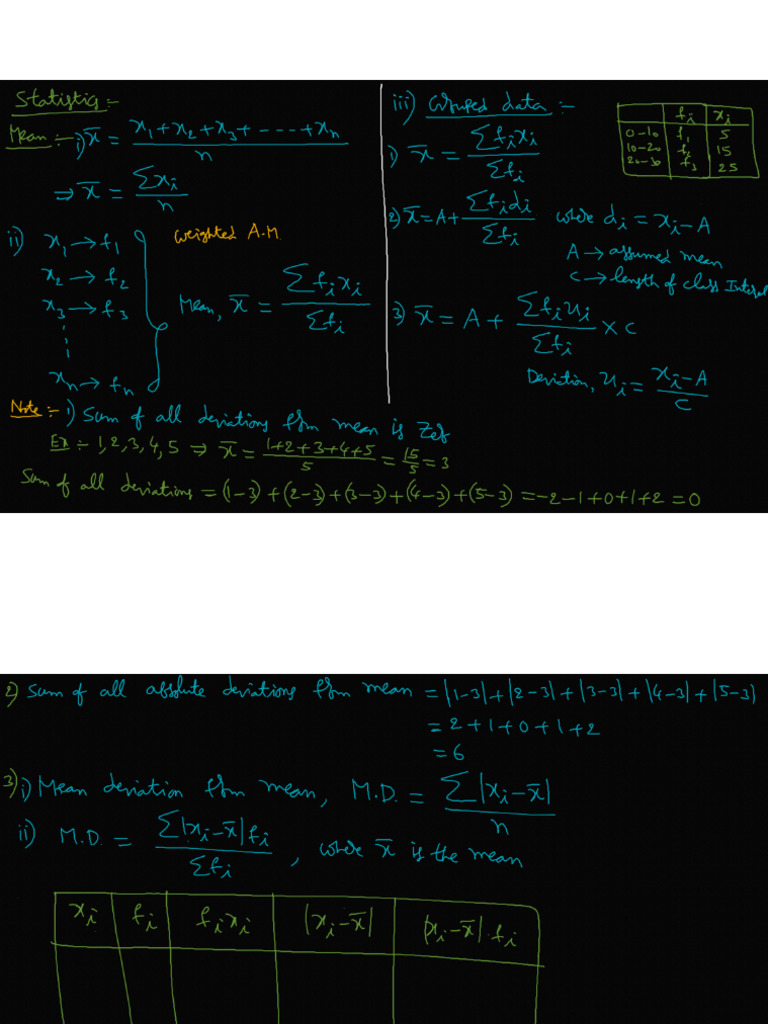 Statistics :-
Mean :- i) x̄ = (x₁+x₂+x₃+-----+xₙ)/n
⇒ x̄ = Σxᵢ/n
ii) x₁→f₁
x₂→f₂
x₃→f₃
xₙ→fₙ
Weighted A.M.
Mean, x̄ = Σfᵢxᵢ/Σfᵢ
iii) Grouped data :-
fᵢ xᵢ
0-10 f₁ 5
10-20 f₂ 15
20-30 f₃ 25
1) x̄ = Σfᵢxᵢ/Σfᵢ
2) x̄ = A + Σfᵢdᵢ/Σfᵢ where dᵢ = xᵢ-A
A → assumed mean
C → length of class Interval
3) x̄ = A + Σfᵢuᵢ/Σfᵢ × C
Deviation, uᵢ = (xᵢ-A)/C
Note :- 1) Sum of all deviations from mean is Zero
Ex :- 1, 2, 3, 4, 5 ⇒ x̄ = (1+2+3+4+5)/5 = 15/5 = 3
Sum of all deviations = (1-3)+(2-3)+(3-3)+(4-3)+(5-3) = -2-1+0+1+2 = 0
2) Sum of all absolute deviations from mean = |1-3|+|2-3|+|3-3|+|4-3|+|5-3|
= 2+1+0+1+2
= 6
3) i) Mean deviation from mean, M.D. = Σ|xᵢ-x̄|/n
ii) M.D. = Σ|xᵢ-x̄|fᵢ/Σfᵢ, where x̄ is the mean
xᵢ fᵢ fᵢxᵢ |xᵢ-x̄| |xᵢ-x̄|.fᵢ